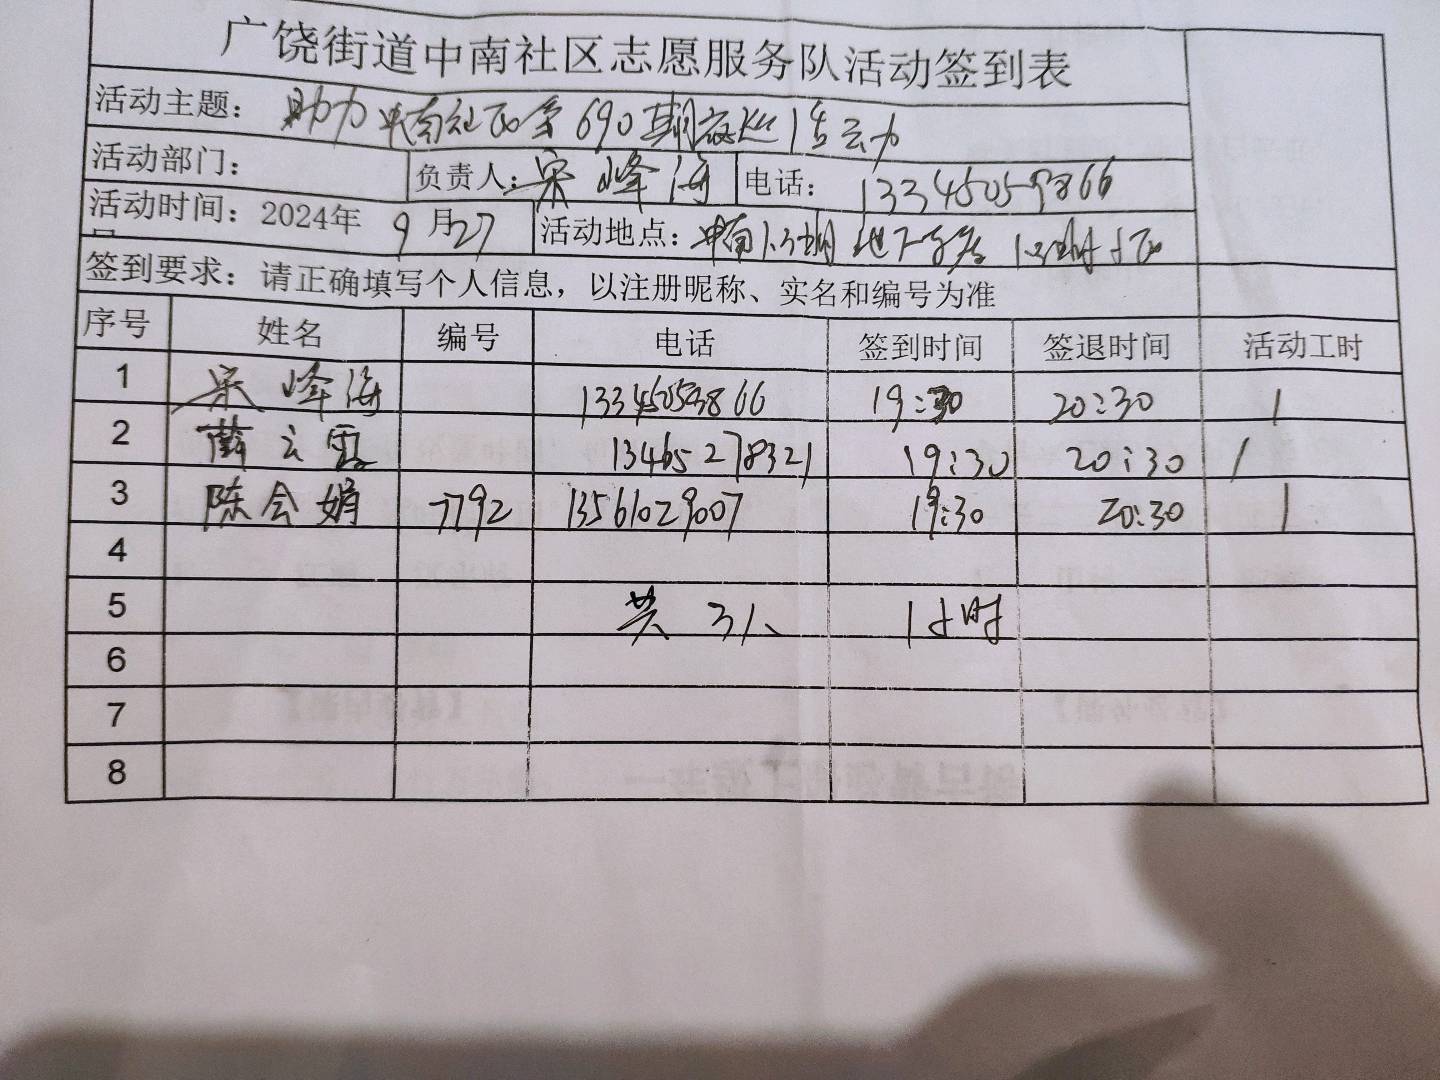 广饶街道中南社区志愿服务队活动签到表
活动主题： 助力中南社区第690期夜巡活动
活动部门： 负责人：宋峰海 电话： 13345059866
活动时间：2024年 9月27 活动地点：中南1.3期地下
签到要求：请正确填写个人信息，以注册昵称、实名和编号为准
序号 姓名 编号 电话 签到时间 签退时间 活动工时
1 宋峰海 13345059866 19:30 20:30 1
2 云霞 13465278321 19:30 20:30 1
3 陈会娟 7792 13561029007 19:30 20:30 1
4
5 共3人 1小时
6
7
8